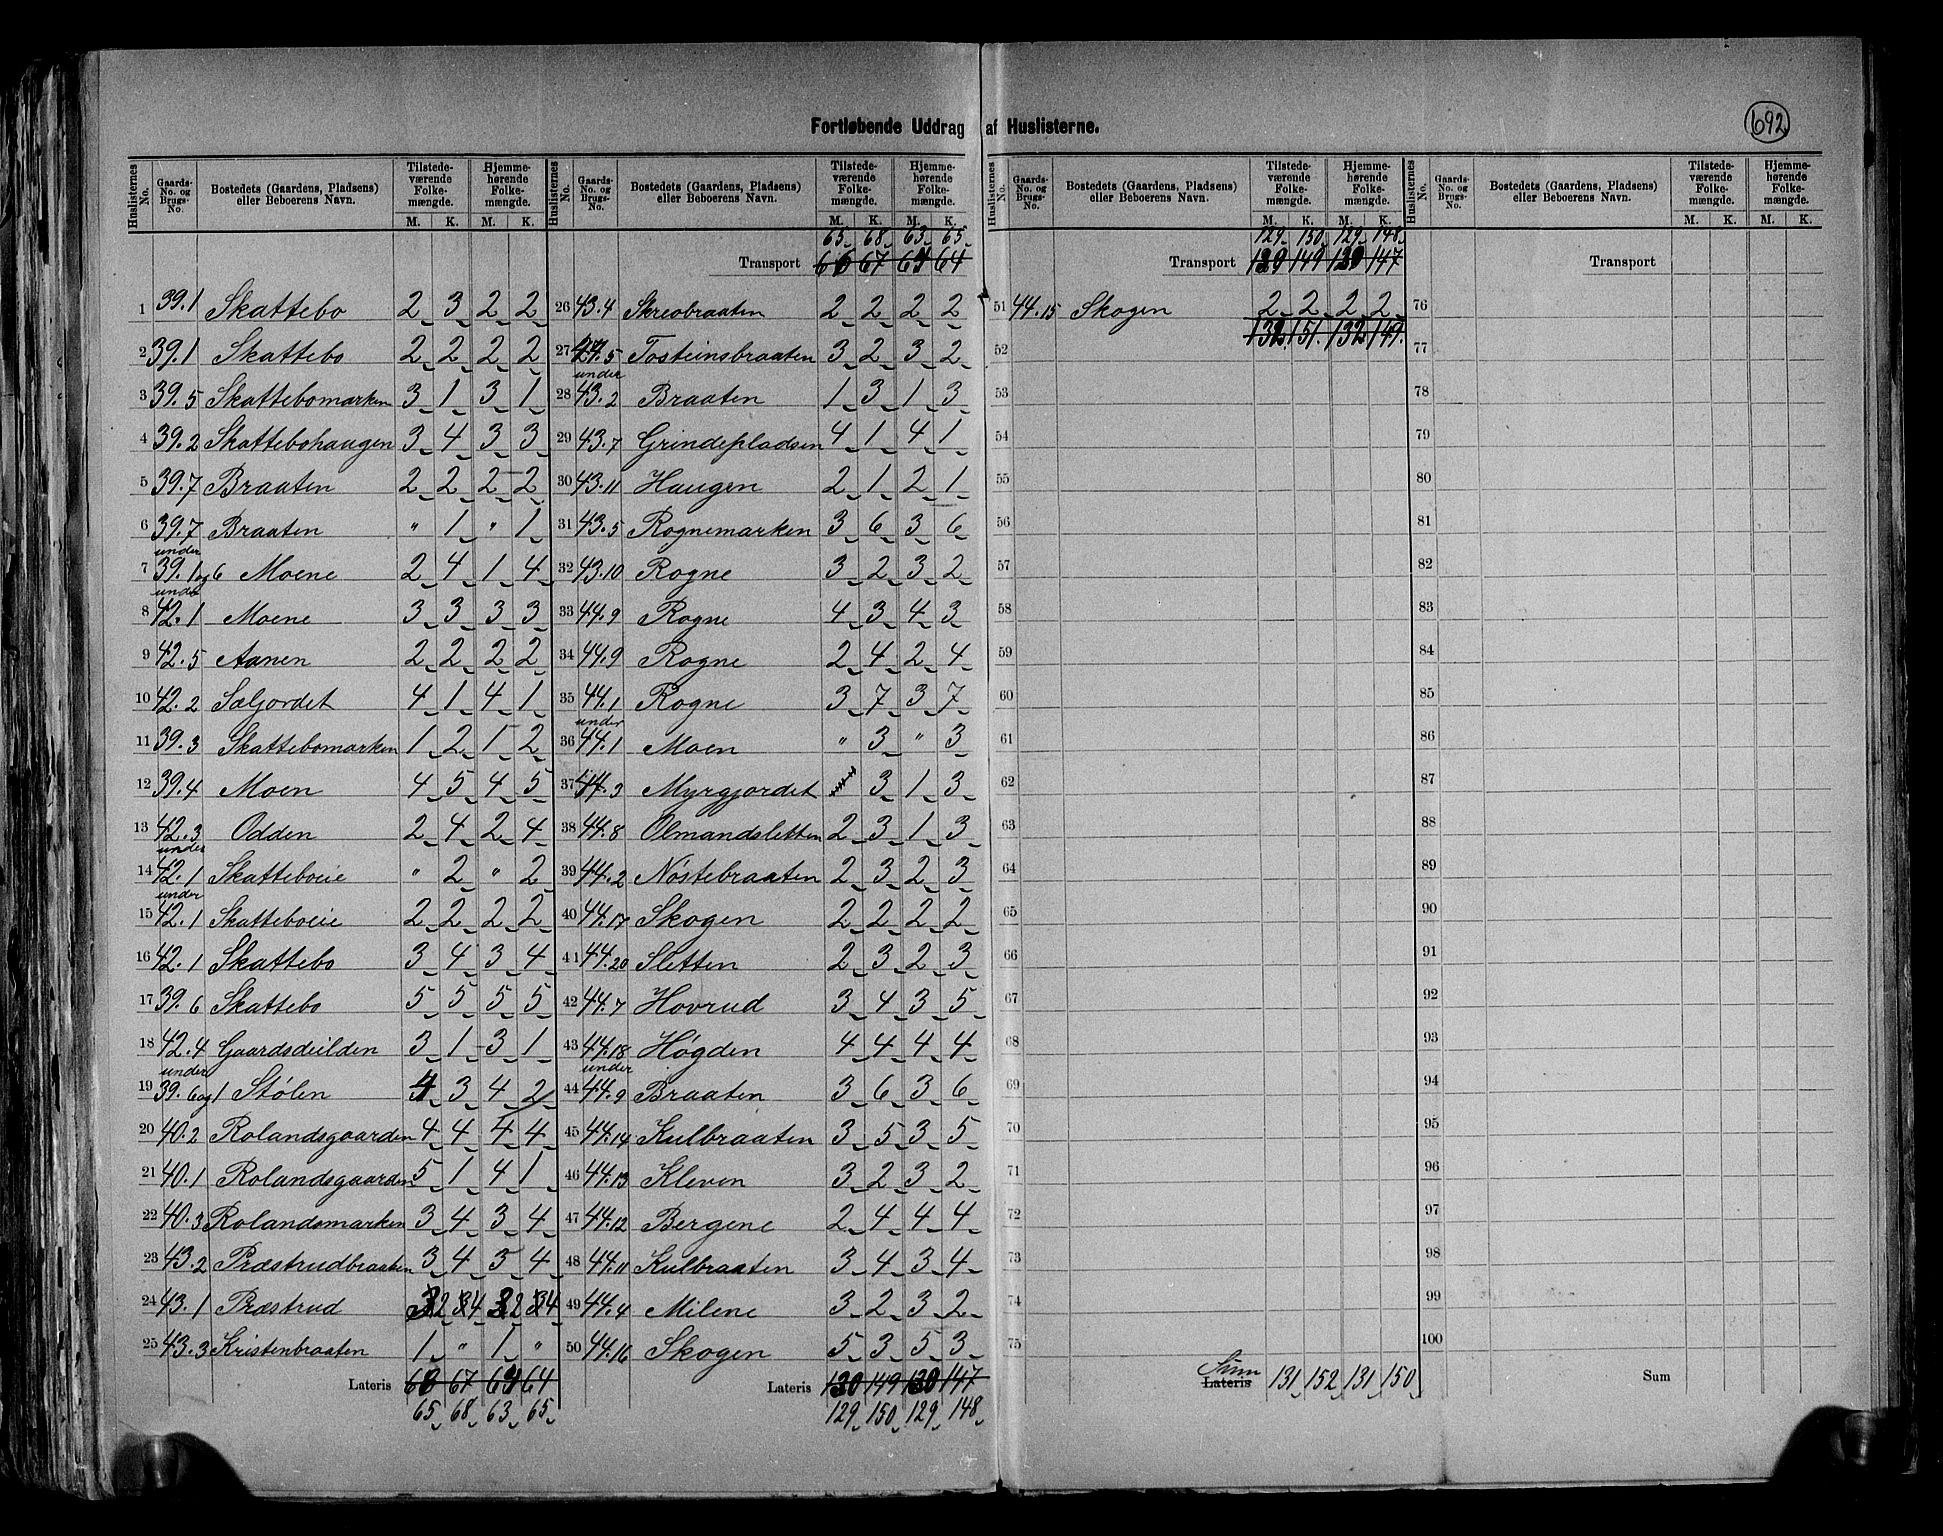 Fortløbende Uddrag af Huslisterne.
692
Huslisternes No. Gaards-No. og Brugs-No. Bostedets (Gaardens, Pladsens) eller Beboerens Navn. Tilstedeværende Folkemængde. M. K. Hjemmehørende Folkemængde. M. K.
1 39.1 Skattebo 2 3 2 2
2 39.1 Skattebo 2 2 2 2
3 39.5 Skattebomarken 3 1 3 1
4 39.2 Skattebohaugen 3 4 3 3
5 39.7 Braaten 2 2 2 2
6 39.7 Braaten " 1 " 1
7 under 39.1 og 6 Moene 2 4 1 4
8 under 42.1 Moene 3 3 3 3
9 42.5 Aanen 2 2 2 2
10 42.2 Sæljordet 4 1 4 1
11 39.3 Skattebomarken 1 2 1 2
12 39.4 Moen 4 5 4 5
13 42.3 Odden 2 4 2 4
14 under 42.1 Skatteboeie " 2 " 2
15 under 42.1 Skatteboeie 2 2 2 2
16 42.1 Skattebo 3 4 3 4
17 39.6 Skattebo 5 5 5 5
18 42.4 Gaardsdeilden 3 1 3 1
19 under 39.6 og 1 Stølen 4 3 4 2
20 40.2 Rolandsgaarden 4 4 4 4
21 40.1 Rolandsgaarden 5 1 4 1
22 40.3 Rolandsmarken 3 4 3 4
23 43.2 Præstrudbraaten 3 4 3 4
24 43.1 Præstrud 2 4 2 4
25 43.3 Kristenbraaten 1 " 1 "
Lateris 67 64
65 68 63 65
Huslisternes No. Gaards-No. og Brugs-No. Bostedets (Gaardens, Pladsens) eller Beboerens Navn. Tilstedeværende Folkemængde. M. K. Hjemmehørende Folkemængde. M. K.
65 68 63 65
Transport 66 67 64 64
26 43.4 Skreobraaten 2 2 2 2
27 44.5 Tosteinsbraaten 3 2 3 2
28 under 43.2 Braaten 1 3 1 3
29 43.7 Grindepladsen 4 1 4 1
30 43.11 Haugen 2 1 2 1
31 43.5 Rognemarken 3 6 3 6
32 43.10 Rogne 3 2 3 2
33 44.9 Rogne 4 3 4 3
34 44.9 Rogne 2 4 2 4
35 44.1 Rogne 3 7 3 7
36 under 44.1 Moen " 3 " 3
37 44.3 Myrgjordet 3 1 3
38 44.8 Olmandsletten 2 3 1 3
39 44.2 Nöstebraaten 2 3 2 3
40 44.17 Skogen 2 2 2 2
41 44.20 Sletten 2 3 2 3
42 44.7 Hovrud 3 4 3 5
43 44.18 Høgden 4 4 4 4
44 under 44.9 Braaten 3 6 3 6
45 44.14 Kulbraaten 3 5 3 5
46 44.13 Kleven 3 2 3 2
47 44.12 Bergene 2 4 4 4
48 44.11 Kulbraaten 3 4 3 4
49 44.4 Milene 3 2 3 2
50 44.16 Skogen 5 3 5 3
Lateris 130 149 130 147
129 150 129 148
Huslisternes No. Gaards-No. og Brugs-No. Bostedets (Gaardens, Pladsens) eller Beboerens Navn. Tilstedeværende Folkemængde. M. K. Hjemmehørende Folkemængde. M. K.
129 150 129 148
Transport 149 147
51 44.15 Skogen 2 2 2 2
132 151 132 149
52
53
54
55
56
57
58
59
60
61
62
63
64
65
66
67
68
69
70
71
72
73
74
75
Sum
Lateris 131 152 131 150
Huslisternes No. Gaards-No. og Brugs-No. Bostedets (Gaardens, Pladsens) eller Beboerens Navn. Tilstedeværende Folkemængde. M. K. Hjemmehørende Folkemængde. M. K.
Transport
76
77
78
79
80
81
82
83
84
85
86
87
88
89
90
91
92
93
94
95
96
97
98
99
100
Sum